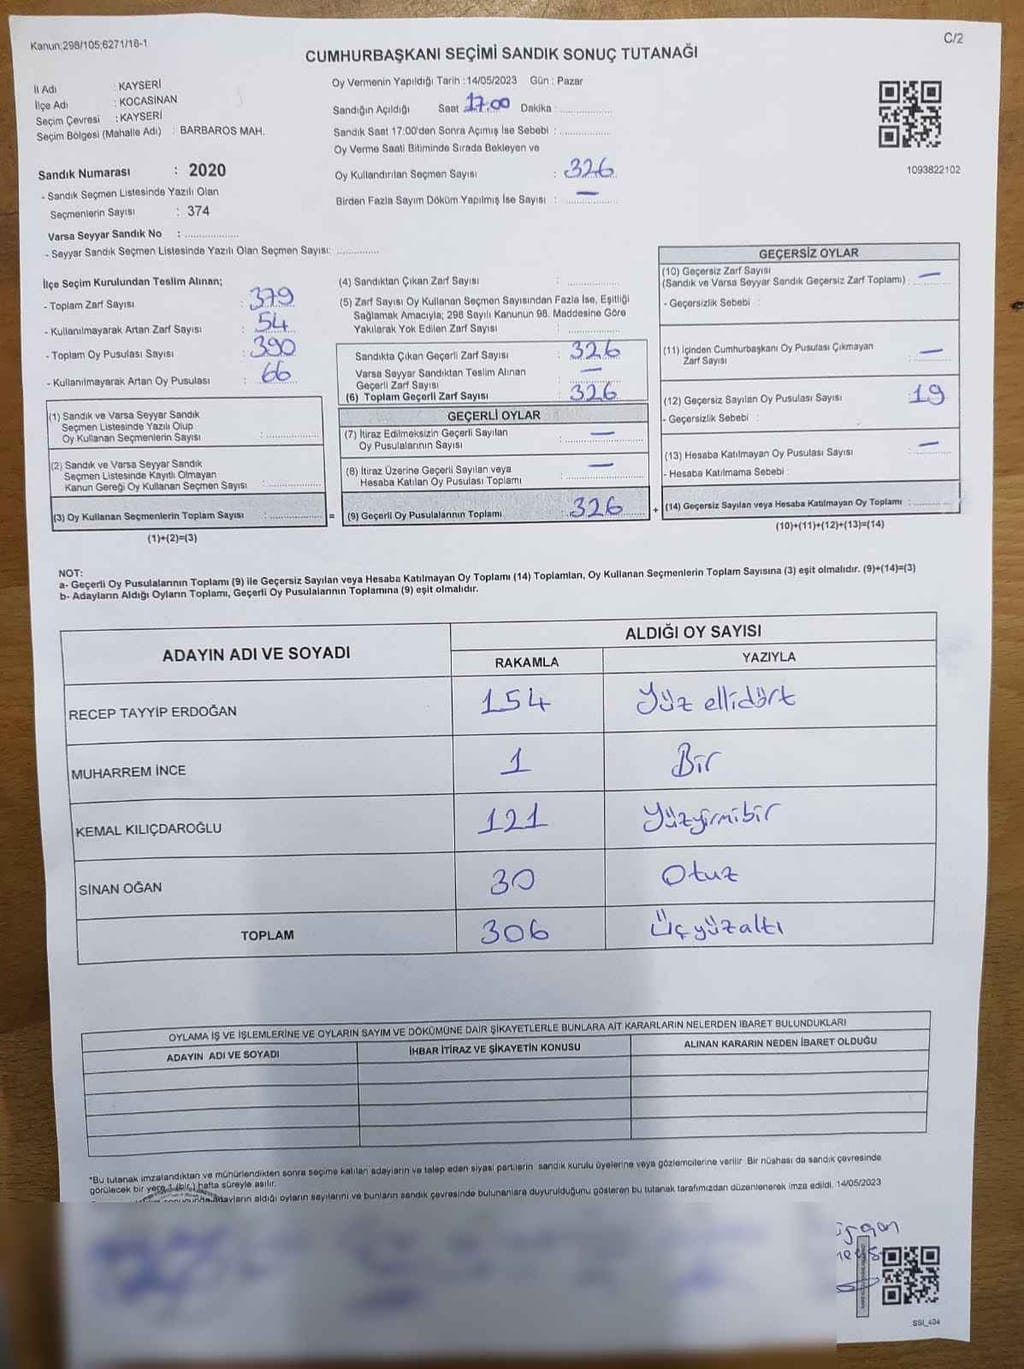 Kanun:298/105;6271/18-1
C/2
CUMHURBAŞKANI SEÇİMİ SANDIK SONUÇ TUTANAĞI
İl Adı : KAYSERİ
İlçe Adı : KOCASİNAN
Seçim Çevresi : KAYSERİ
Seçim Bölgesi (Mahalle Adı) : BARBAROS MAH.
Sandık Numarası : 2020
- Sandık Seçmen Listesinde Yazılı Olan
Seçmenlerin Sayısı : 374
Varsa Seyyar Sandık No :
- Seyyar Sandık Seçmen Listesinde Yazılı Olan Seçmen Sayısı:
Oy Vermenin Yapıldığı Tarih :14/05/2023 Gün : Pazar
Sandığın Açıldığı Saat 17.00 Dakika :
Sandık Saat 17:00'den Sonra Açımış İse Sebebi :
Oy Verme Saati Bitiminde Sırada Bekleyen ve
Oy Kullandırılan Seçmen Sayısı : 326
Birden Fazla Sayım Döküm Yapılmış İse Sayısı : —
1093822102
İlçe Seçim Kurulundan Teslim Alınan;
- Toplam Zarf Sayısı : 379
- Kullanılmayarak Artan Zarf Sayısı : 54
- Toplam Oy Pusulası Sayısı : 390
- Kullanılmayarak Artan Oy Pusulası : 66
(1) Sandık ve Varsa Seyyar Sandık
Seçmen Listesinde Yazılı Olup
Oy Kullanan Seçmenlerin Sayısı :
(2) Sandık ve Varsa Seyyar Sandık
Seçmen Listesinde Kayıtlı Olmayan
Kanun Gereği Oy Kullanan Seçmen Sayısı :
(3) Oy Kullanan Seçmenlerin Toplam Sayısı :
(1)+(2)=(3)
=
(4) Sandıktan Çıkan Zarf Sayısı :
(5) Zarf Sayısı Oy Kullanan Seçmen Sayısından Fazla İse, Eşitliği
Sağlamak Amacıyla; 298 Sayılı Kanunun 98. Maddesine Göre
Yakılarak Yok Edilen Zarf Sayısı :
Sandıkta Çıkan Geçerli Zarf Sayısı : 326
Varsa Seyyar Sandıktan Teslim Alınan
Geçerli Zarf Sayısı : —
(6) Toplam Geçerli Zarf Sayısı : 326
GEÇERLİ OYLAR
(7) İtiraz Edilmeksizin Geçerli Sayılan
Oy Pusulalarının Sayısı : —
(8) İtiraz Üzerine Geçerli Sayılan veya
Hesaba Katılan Oy Pusulası Toplamı : —
(9) Geçerli Oy Pusulalarının Toplamı : 326
+
GEÇERSİZ OYLAR
(10) Geçersiz Zarf Sayısı
(Sandık ve Varsa Seyyar Sandık Geçersiz Zarf Toplamı) : —
- Geçersizlik Sebebi :
(11) İçinden Cumhurbaşkanı Oy Pusulası Çıkmayan
Zarf Sayısı : —
(12) Geçersiz Sayılan Oy Pusulası Sayısı : 19
- Geçersizlik Sebebi :
(13) Hesaba Katılmayan Oy Pusulası Sayısı : —
- Hesaba Katılmama Sebebi :
(14) Geçersiz Sayılan veya Hesaba Katılmayan Oy Toplamı :
(10)+(11)+(12)+(13)=(14)
NOT:
a- Geçerli Oy Pusulalarının Toplamı (9) ile Geçersiz Sayılan veya Hesaba Katılmayan Oy Toplamı (14) Toplamları, Oy Kullanan Seçmenlerin Toplam Sayısına (3) eşit olmalıdır. (9)+(14)=(3)
b- Adayların Aldığı Oyların Toplamı, Geçerli Oy Pusulalarının Toplamına (9) eşit olmalıdır.
ADAYIN ADI VE SOYADI
ALDIĞI OY SAYISI
RAKAMLA YAZIYLA
RECEP TAYYİP ERDOĞAN 154 Yüz ellidört
MUHARREM İNCE 1 Bir
KEMAL KILIÇDAROĞLU 121 Yüzyirmibir
SİNAN OĞAN 30 Otuz
TOPLAM 306 Üçyüzaltı
OYLAMA İŞ VE İŞLEMLERİNE VE OYLARIN SAYIM VE DÖKÜMÜNE DAİR ŞİKAYETLERLE BUNLARA AİT KARARLARIN NELERDEN İBARET BULUNDUKLARI
ADAYIN ADI VE SOYADI İHBAR İTİRAZ VE ŞİKAYETİN KONUSU ALINAN KARARIN NEDEN İBARET OLDUĞU
*Bu tutanak imzalandıktan ve mühürlendikten sonra seçime katılan adayların ve talep eden siyasi partilerin sandık kurulu üyelerine veya gözlemcilerine verilir. Bir nüshası da sandık çevresinde
görülecek bir yere 1 (bir) hafta süreyle asılır.
adayların aldığı oyların sayılarını ve bunların sandık çevresinde bulunanlara duyurulduğunu gösteren bu tutanak tarafımızdan düzenlenerek imza edildi. 14/05/2023
SSI_434